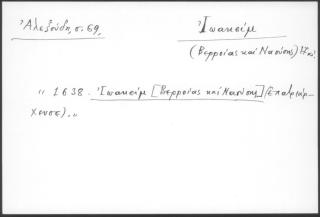 Ἀλεξούδη, σ. 69.
Ἰωακείμ
(Βερροίας καὶ Ναούσης)
„ 1638. Ἰωακείμ [Βερροίας καὶ Ναούσης] (Ἐπατριάρ-
χευσε). „